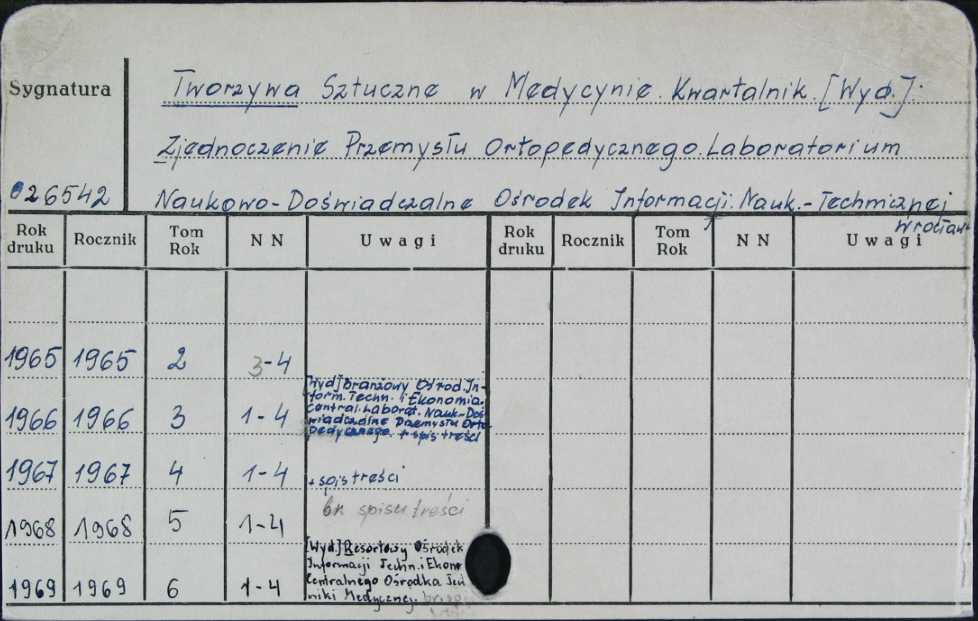 Sygnatura
Tworzywa Sztuczne w Medycynie. Kwartalnik. [Wyd.]:
Zjednoczenie Przemysłu Ortopedycznego. Laboratorium
026542 Naukowo-Doświadczalne Ośrodek Informacji. Nauk.-Technicznej
Wrocław
Rok druku Rocznik Tom Rok N N Uwagi Rok druku Rocznik Tom Rok N N Uwagi
1965 1965 2 3-4
[Wyd.] Branżowy Ośrod. In-
form. Techn. i Ekonomia.
Central. Laborat. Nauk-Doś-
1966 1966 3 1-4 wiadczalne Przemysłu Orto-
pedycznego. + spis treści
1967 1967 4 1-4 + spis treści
br spisu treści
1968 1968 5 1-4
[Wyd.] Resortowy Ośrodek
Informacji Techn. i Ekono
1969 1969 6 1-4 Centralnego Ośrodka Tech
niki Medycznej.